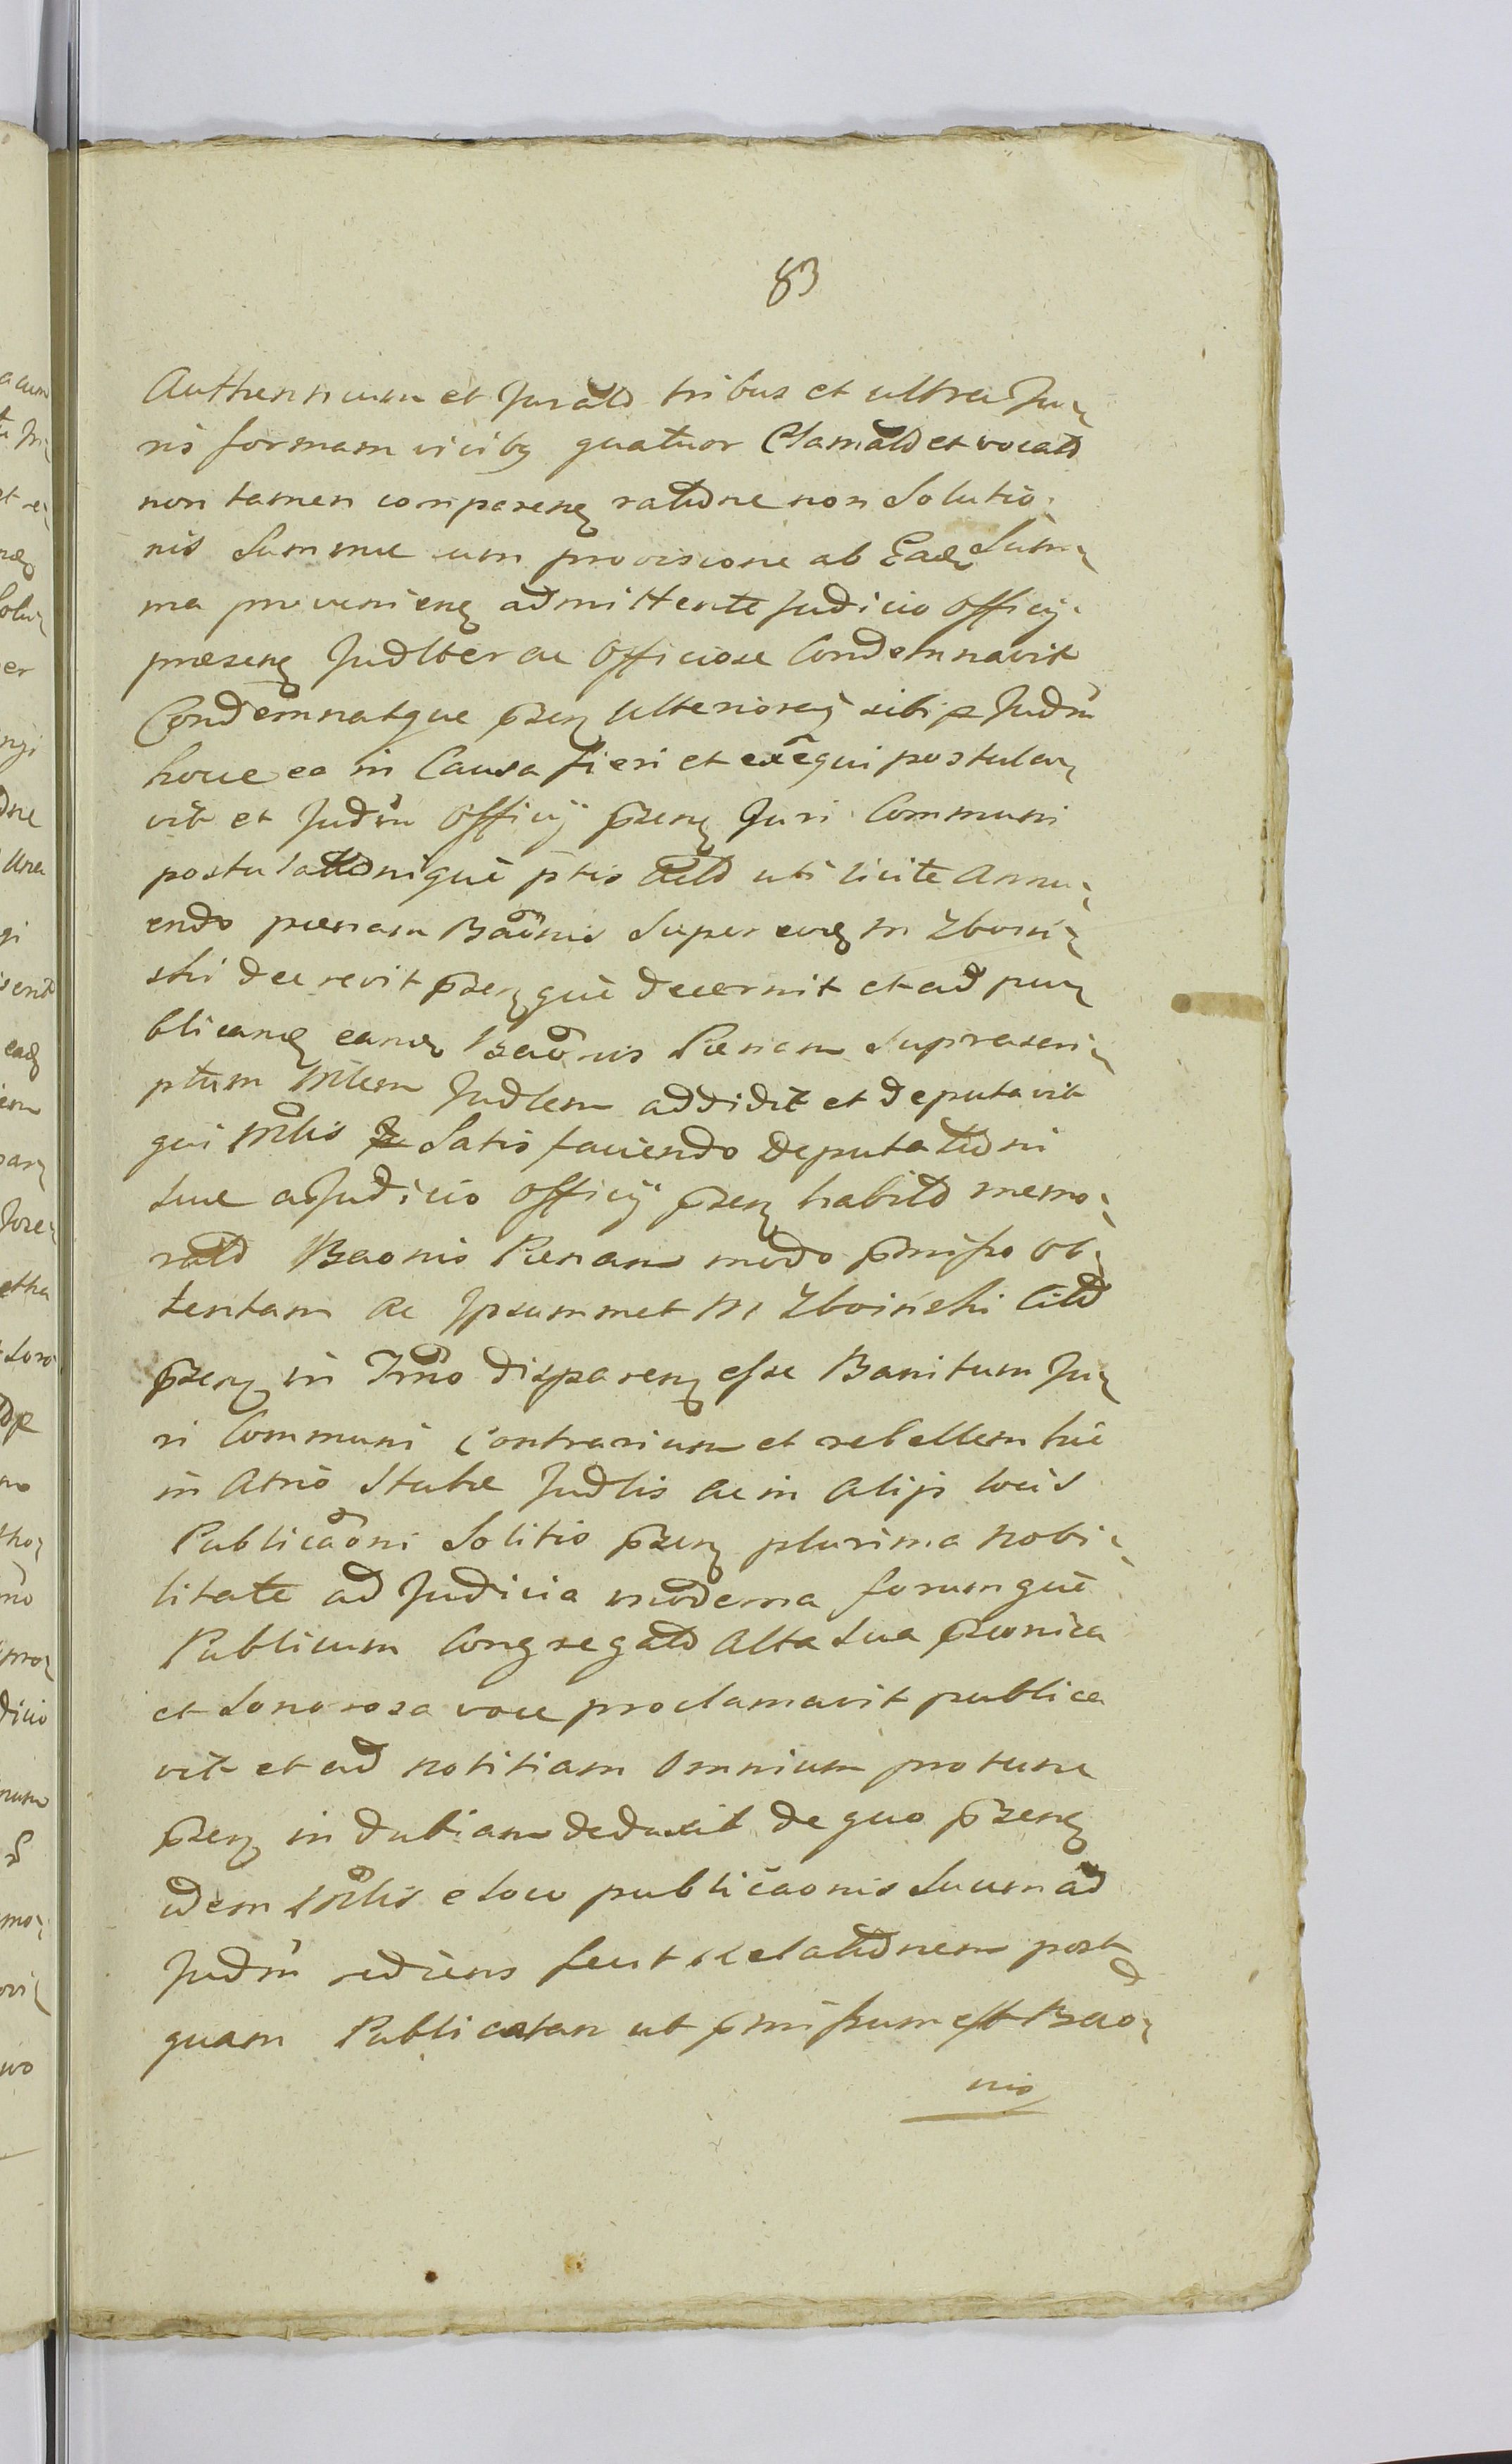 83
Authenticum et Juratd tribus et ultra Ju-
ris formam vicibq quatuor Clamatd et vocatd
non tamen comparenq ratidne non Solutio-
nis Summe cum provisione ab Eadq Sum-
ma provenienq admittente Judicio Officij
præsenq Judlter ac Officiose Condemnavit
Condemnatque przenq Ulteriorey sibi p Judm
hocce ea in Causa fieri et exequi postula-
vit et Judm Officij przenq Juri Communi
postulatdnique ptis Actd uti licite Annu-
endo pænam Baonis Super eodq M Zboin-
ski decrevit przenque decernit et ad pu-
blicandq eandq Baonis Pænam Suprascri-
ptum Mlem Judlem addidit et deputavit
qui Mlis Satis faciendo deputatdni
Suæ a Judicio Officij przenq habitd memo-
ratd Baonis Pænam modo pmisso ob-
tentam ac Ipsummet M Zboinski Citd
przenq in Trno disparenq esse Banitum Ju-
ri Communi Contrarium et rebellem hic
in Atrio Stubæ Judlis ac in Alijs locis
Publicaoni Solitis przenq plurima Nobi-
litate ad Judicia moderna forumque
Publicum Congregatd Alta Sua præonica
et Sonorosa voce proclamavit publica
vit et ad notitiam Omnium protunc
przenq indubiam deduxit de quo przenq
idem Mlis e loco publicaonis Suum ad
Judm rediens fecit Relatidnem post
quam Publicatam ut pmissum est Bao-
nis